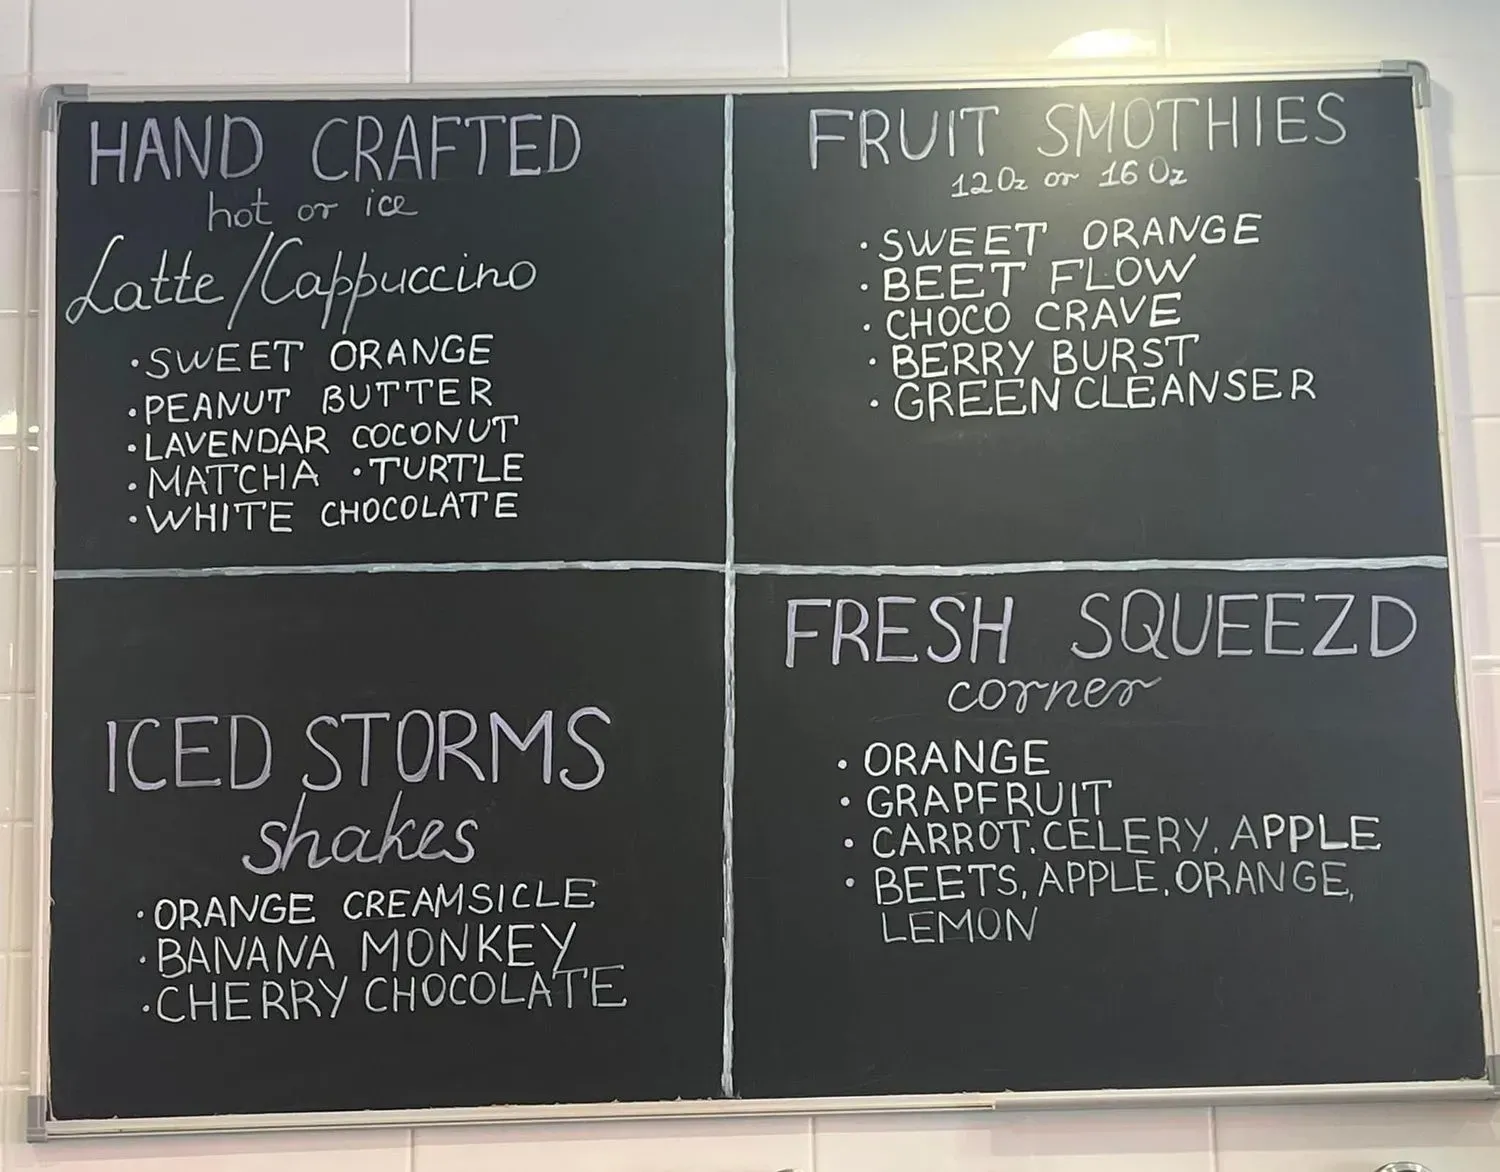 HAND CRAFTED
hot or ice
Latte/Cappuccino
• SWEET ORANGE
• PEANUT BUTTER
• LAVENDAR COCONUT
• MATCHA • TURTLE
• WHITE CHOCOLATE
FRUIT SMOTHIES
12 Oz or 16 Oz
• SWEET ORANGE
• BEET FLOW
• CHOCO CRAVE
• BERRY BURST
• GREEN CLEANSER
ICED STORMS
shakes
• ORANGE CREAMSICLE
• BANANA MONKEY
• CHERRY CHOCOLATE
FRESH SQUEEZD
corner
• ORANGE
• GRAPFRUIT
• CARROT, CELERY, APPLE
• BEETS, APPLE, ORANGE,
LEMON